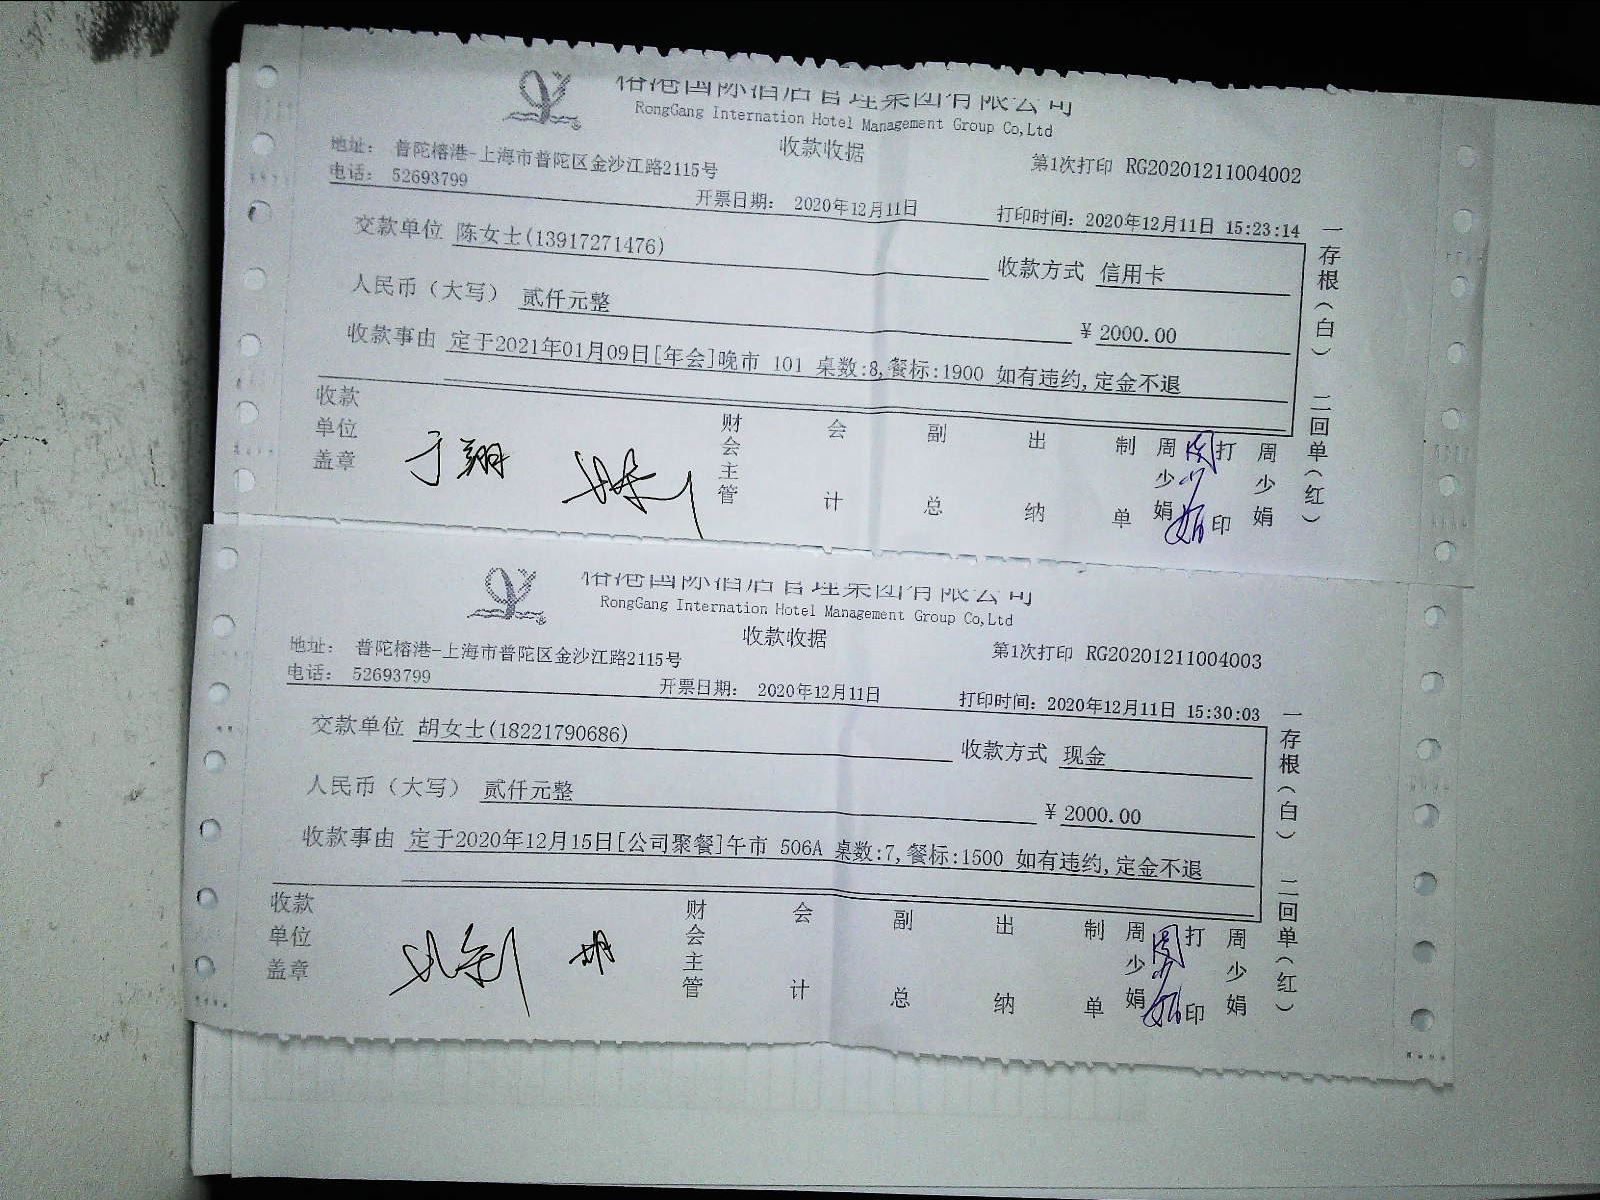 榕港国际酒店管理集团有限公司
RongGang Internation Hotel Management Group Co,Ltd
收款收据
地址: 普陀榕港-上海市普陀区金沙江路2115号
第1次打印 RG20201211004002
电话: 52693799
开票日期: 2020年12月11日
打印时间: 2020年12月11日 15:23:14
交款单位 陈女士(13917271476)
收款方式 信用卡
人民币(大写) 贰仟元整
¥ 2000.00
收款事由 定于2021年01月09日[年会]晚市 101 桌数:8,餐标:1900 如有违约,定金不退
一存根(白) 二回单(红)
收款单位盖章
于翔
财会主管
会计
副总
出纳
制单 周少娟
周少娟
打印 周少娟
榕港国际酒店管理集团有限公司
RongGang Internation Hotel Management Group Co,Ltd
收款收据
地址: 普陀榕港-上海市普陀区金沙江路2115号
第1次打印 RG20201211004003
电话: 52693799
开票日期: 2020年12月11日
打印时间: 2020年12月11日 15:30:03
交款单位 胡女士(18221790686)
收款方式 现金
人民币(大写) 贰仟元整
¥ 2000.00
收款事由 定于2020年12月15日[公司聚餐]午市 506A 桌数:7,餐标:1500 如有违约,定金不退
一存根(白) 二回单(红)
收款单位盖章
胡
财会主管
会计
副总
出纳
制单 周少娟
周少娟
打印 周少娟